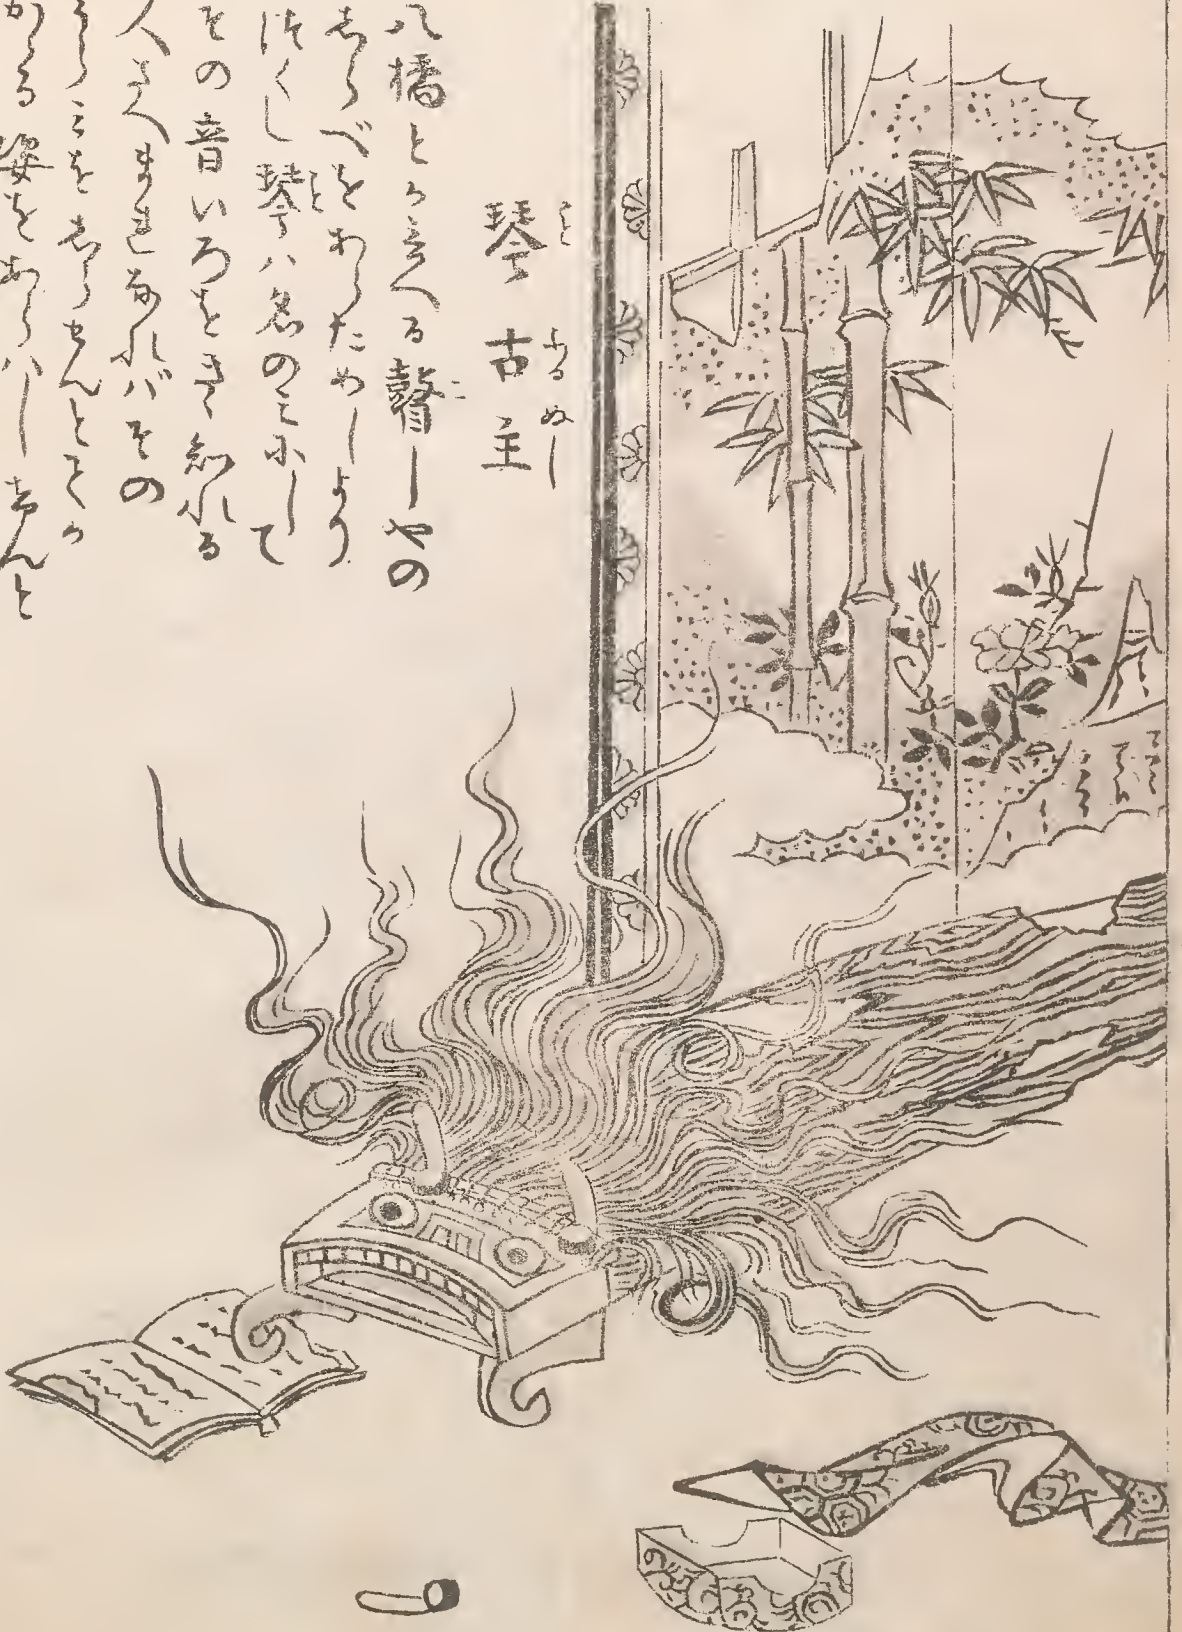 琴古主
ことふるぬし
八橋とか言へる瞽しやの
しらべをあらためしより
つくし琴ハ名のミにして
その音いろをきゝ知れる
人さへまれなれバその
うらミをしらせんとてか
かゝる姿をあらハしけんと